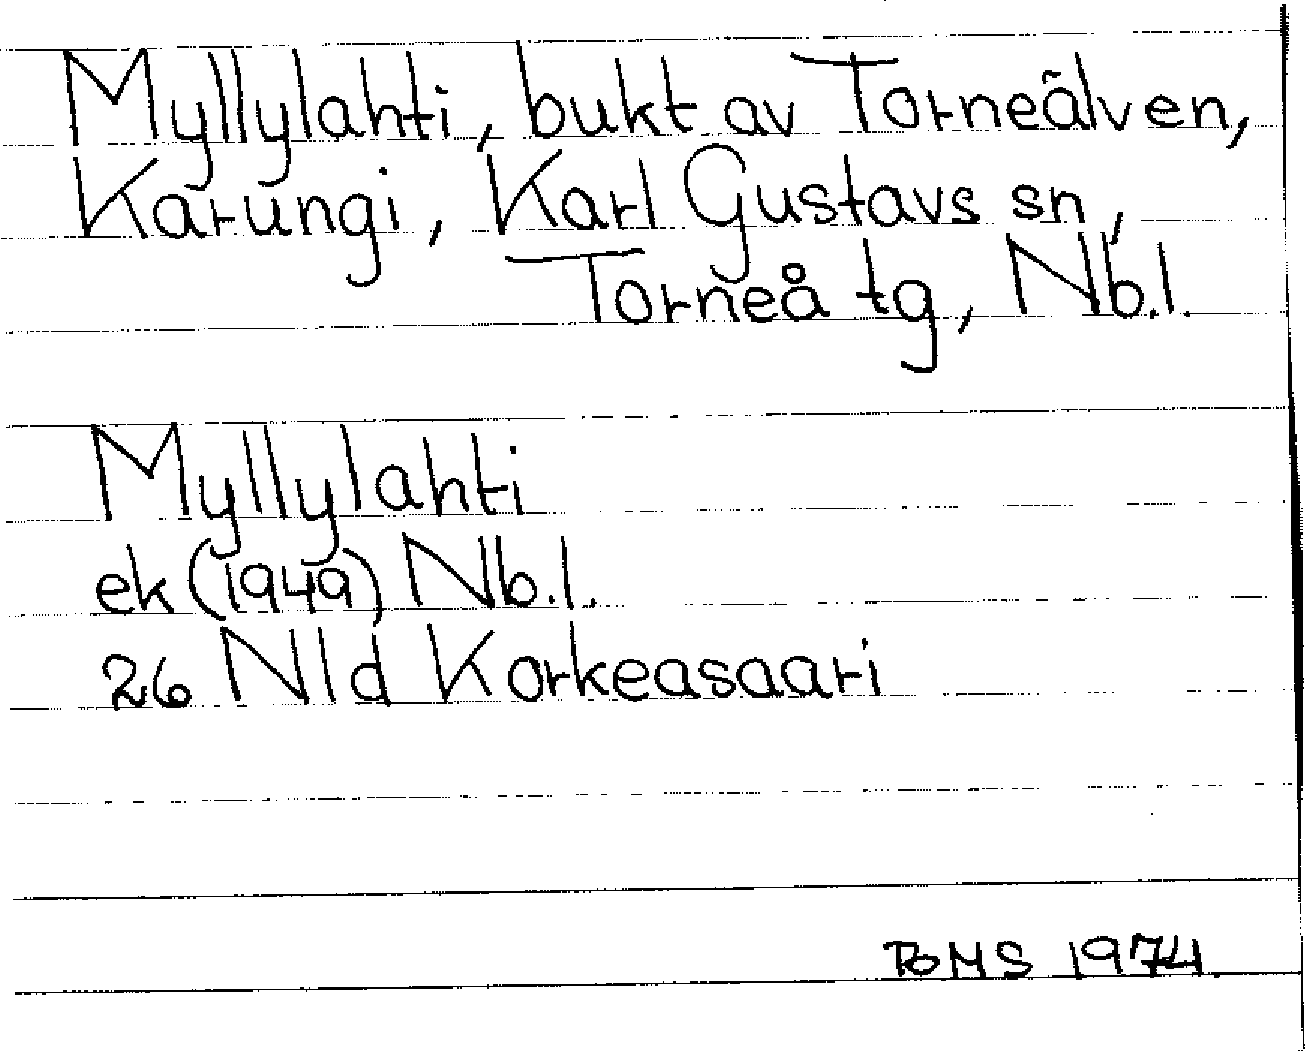 Myllylahti, bukt av Torneälven,
Karungi, Karl Gustavs sn,
Torneå tg, Nb.l.
Myllylahti
ek (1949) Nb.l.
26 Nld Korkeasaari
BMS 1974.